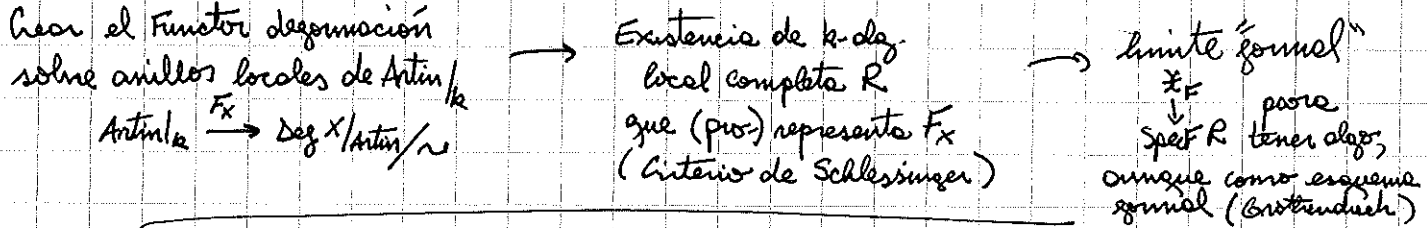 Crear el Functor deformación
sobre anillos locales de Artin/k
Artin/k →^{F_X} Def X/Artin/~
→
Existencia de k-alg.
local completa R
que (pro-) representa F_X
(Criterio de Schlessinger)
→
límite "formal"
𝔛_F
↓ para
Spec^F R tener algo,
aunque como esquema
formal (Grothendieck)